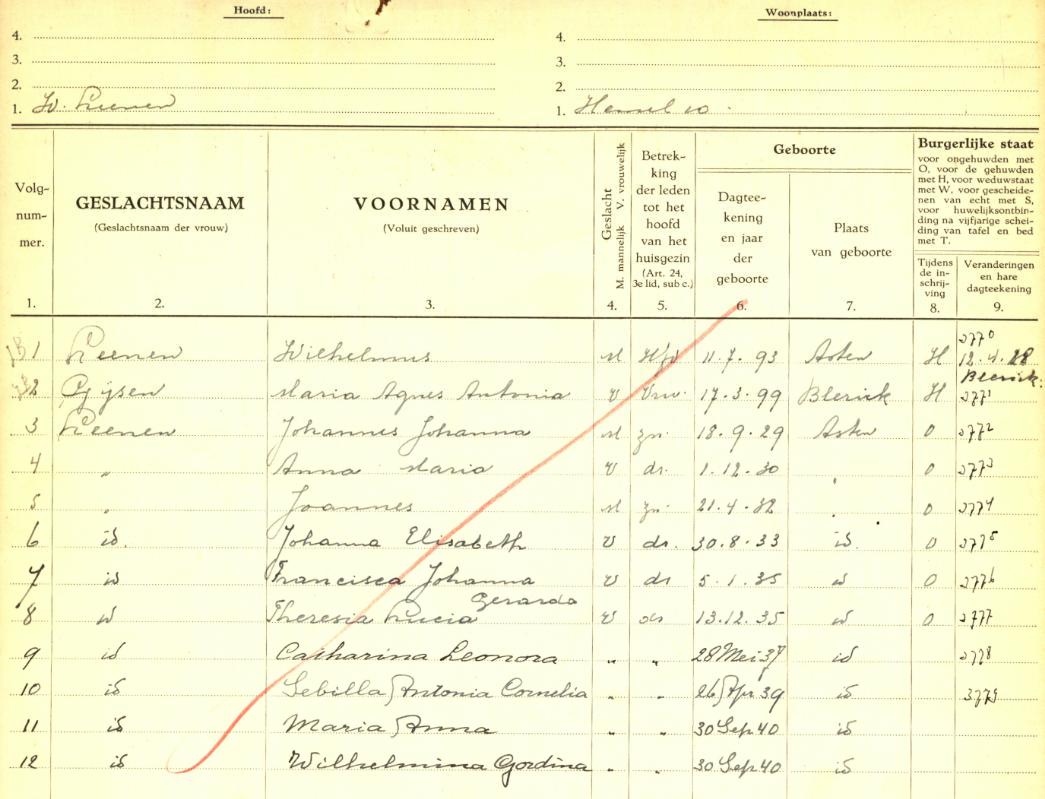 Hoofd: Woonplaats:
4. 4.
3. 3.
2. 2.
1. W. Leenen 1. Heusel 10.
Volg-
num-
mer.
GESLACHTSNAAM
(Geslachtsnaam der vrouw)
VOORNAMEN
(Voluit geschreven)
Geslacht
M. mannelijk V. vrouwelijk
Betrek-
king
der leden
tot het
hoofd
van het
huisgezin
(Art. 24,
3e lid, sub c.)
Geboorte
Dagtee-
kening
en jaar
der
geboorte
Plaats
van geboorte
Burgerlijke staat
voor ongehuwden met
O, voor de gehuwden
met H, voor weduwstaat
met W, voor gescheide-
nen van echt met S,
voor huwelijksontbin-
ding na vijfjarige schei-
ding van tafel en bed
met T.
Tijdens
de in-
schrij-
ving
Veranderingen
en hare
dagteekening
1. 2. 3. 4. 5. 6. 7. 8. 9.
1 Leenen Wilhelmus M Hfd 11.7.93 Asten H 2770 12.4.28 Blerick.
2 Gijsen Maria Agnes Antonia V Vrw. 17.3.99 Blerick H 2771
3 Leenen Johannes Johanna M zn. 18.9.29 Asten O 2772
4 " Anna Maria V dr. 1.12.30 " O 2773
5 " Joannes M zn. 21.4.32 " O 2774
6 id. Johanna Elisabeth V dr. 30.8.33 id. O 2775
7 id Francisca Johanna V dr 5.1.35 id O 2776
Gerarda
8 id Theresia Lucia V dr 13.12.35 id O 2777
9 id Catharina Leonora " " 28 Mei 37 id 2778
10 id Sebilla Antonia Cornelia " " 26 Apr. 39 id 3779
11 id Maria Anna " " 30 Sep 40 id
12 id Wilhelmina Gordina " " 30 Sep 40 id